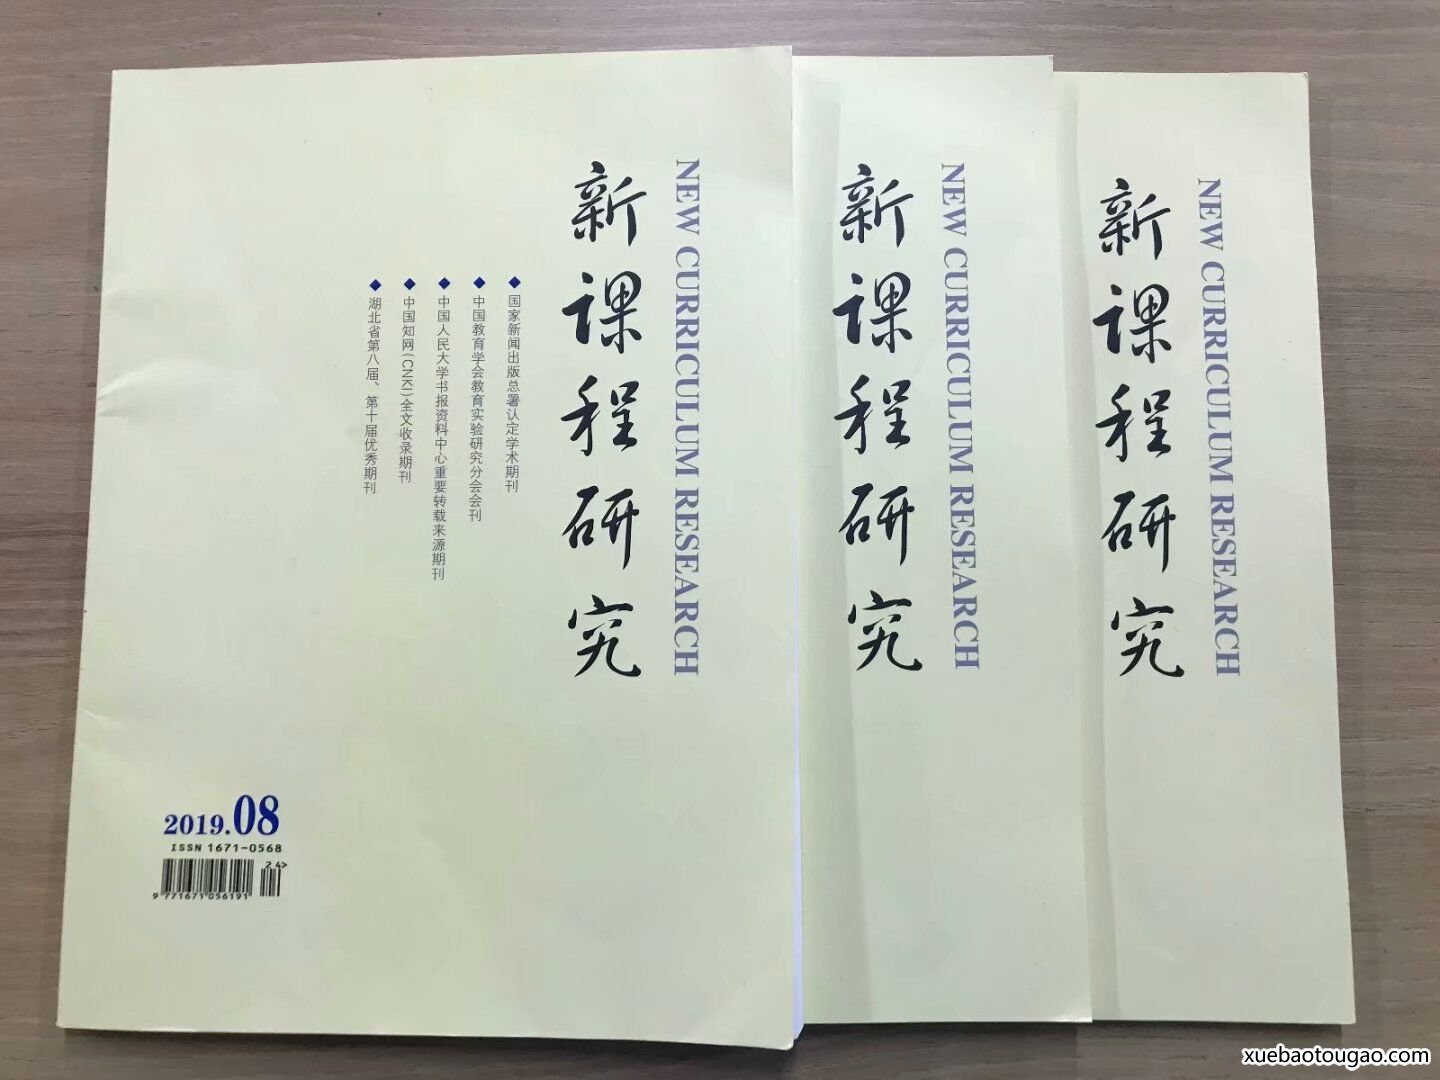 NEW CURRICULUM RESEARCH
新课程研究
◆国家新闻出版总署认定学术期刊
◆中国教育学会教育实验研究分会会刊
◆中国人民大学书报资料中心重要转载来源期刊
◆中国知网(CNKI)全文收录期刊
◆湖北省第八届、第十届优秀期刊
2019.08
ISSN 1671-0568
24>
9 771671 056191
NEW CURRICULUM RESEARCH
新课程研究
NEW CURRICULUM RESEARCH
新课程研究
xuebaotougao.com